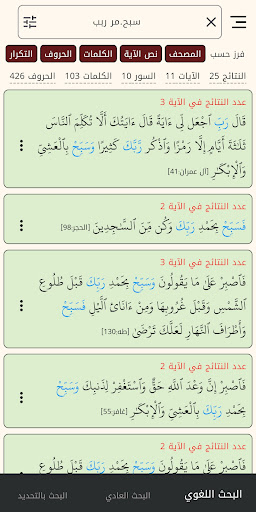 سبح.مر ربب
فرز حسب المصحف نص الآية الكلمات الحروف التكرار
النتائج 25 الآيات 11 السور 10 الكلمات 103 الحروف 426
عدد النتائج في الآية 3
قَالَ رَبِّ ٱجْعَل لِّىٓ ءَايَةً قَالَ ءَايَتُكَ أَلَّا تُكَلِّمَ ٱلنَّاسَ
ثَلَٰثَةَ أَيَّامٍ إِلَّا رَمْزًا وَٱذْكُر رَّبَّكَ كَثِيرًا وَسَبِّحْ بِٱلْعَشِىِّ
وَٱلْإِبْكَٰرِ [آل عمران:41]
عدد النتائج في الآية 2
فَسَبِّحْ بِحَمْدِ رَبِّكَ وَكُن مِّنَ ٱلسَّٰجِدِينَ [الحجر:98]
عدد النتائج في الآية 3
فَٱصْبِرْ عَلَىٰ مَا يَقُولُونَ وَسَبِّحْ بِحَمْدِ رَبِّكَ قَبْلَ طُلُوعِ
ٱلشَّمْسِ وَقَبْلَ غُرُوبِهَا وَمِنْ ءَانَآئِ ٱلَّيْلِ فَسَبِّحْ
وَأَطْرَافَ ٱلنَّهَارِ لَعَلَّكَ تَرْضَىٰ [طه:130]
عدد النتائج في الآية 2
فَٱصْبِرْ إِنَّ وَعْدَ ٱللَّهِ حَقٌّ وَٱسْتَغْفِرْ لِذَنۢبِكَ وَسَبِّحْ
بِحَمْدِ رَبِّكَ بِٱلْعَشِىِّ وَٱلْإِبْكَٰرِ [غافر:55]
عدد النتائج في الآية 2
فَٱصْبِرْ عَلَىٰ مَا يَقُولُونَ وَسَبِّحْ بِحَمْدِ رَبِّكَ قَبْلَ
البحث اللغوي البحث العادي البحث بالتحديد